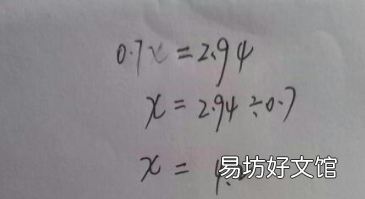 0.7x=2.94
x=2.94÷0.7
x=
易坊好文馆